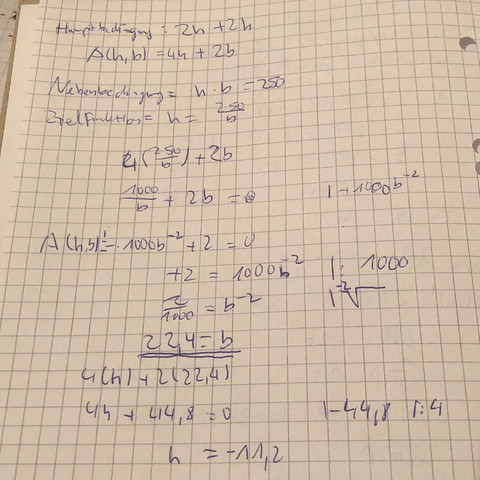 Hauptbedingung: 2h + 2h
A(h,b) = 4h + 2b
Nebenbedingung = h · b = 250
Zielfunktion = h = 250/b
4(250/b) + 2b
1000/b + 2b = 0 | -1000b^-2
A(h,b)' = -1000b^-2 + 2 = 0
+2 = 1000b^-2 | : 1000
2/1000 = b^-2 | ^-2√
22,4 = b
4(h) + 2(22,4)
4h + 44,8 = 0 | -44,8 | :4
h = -11,2